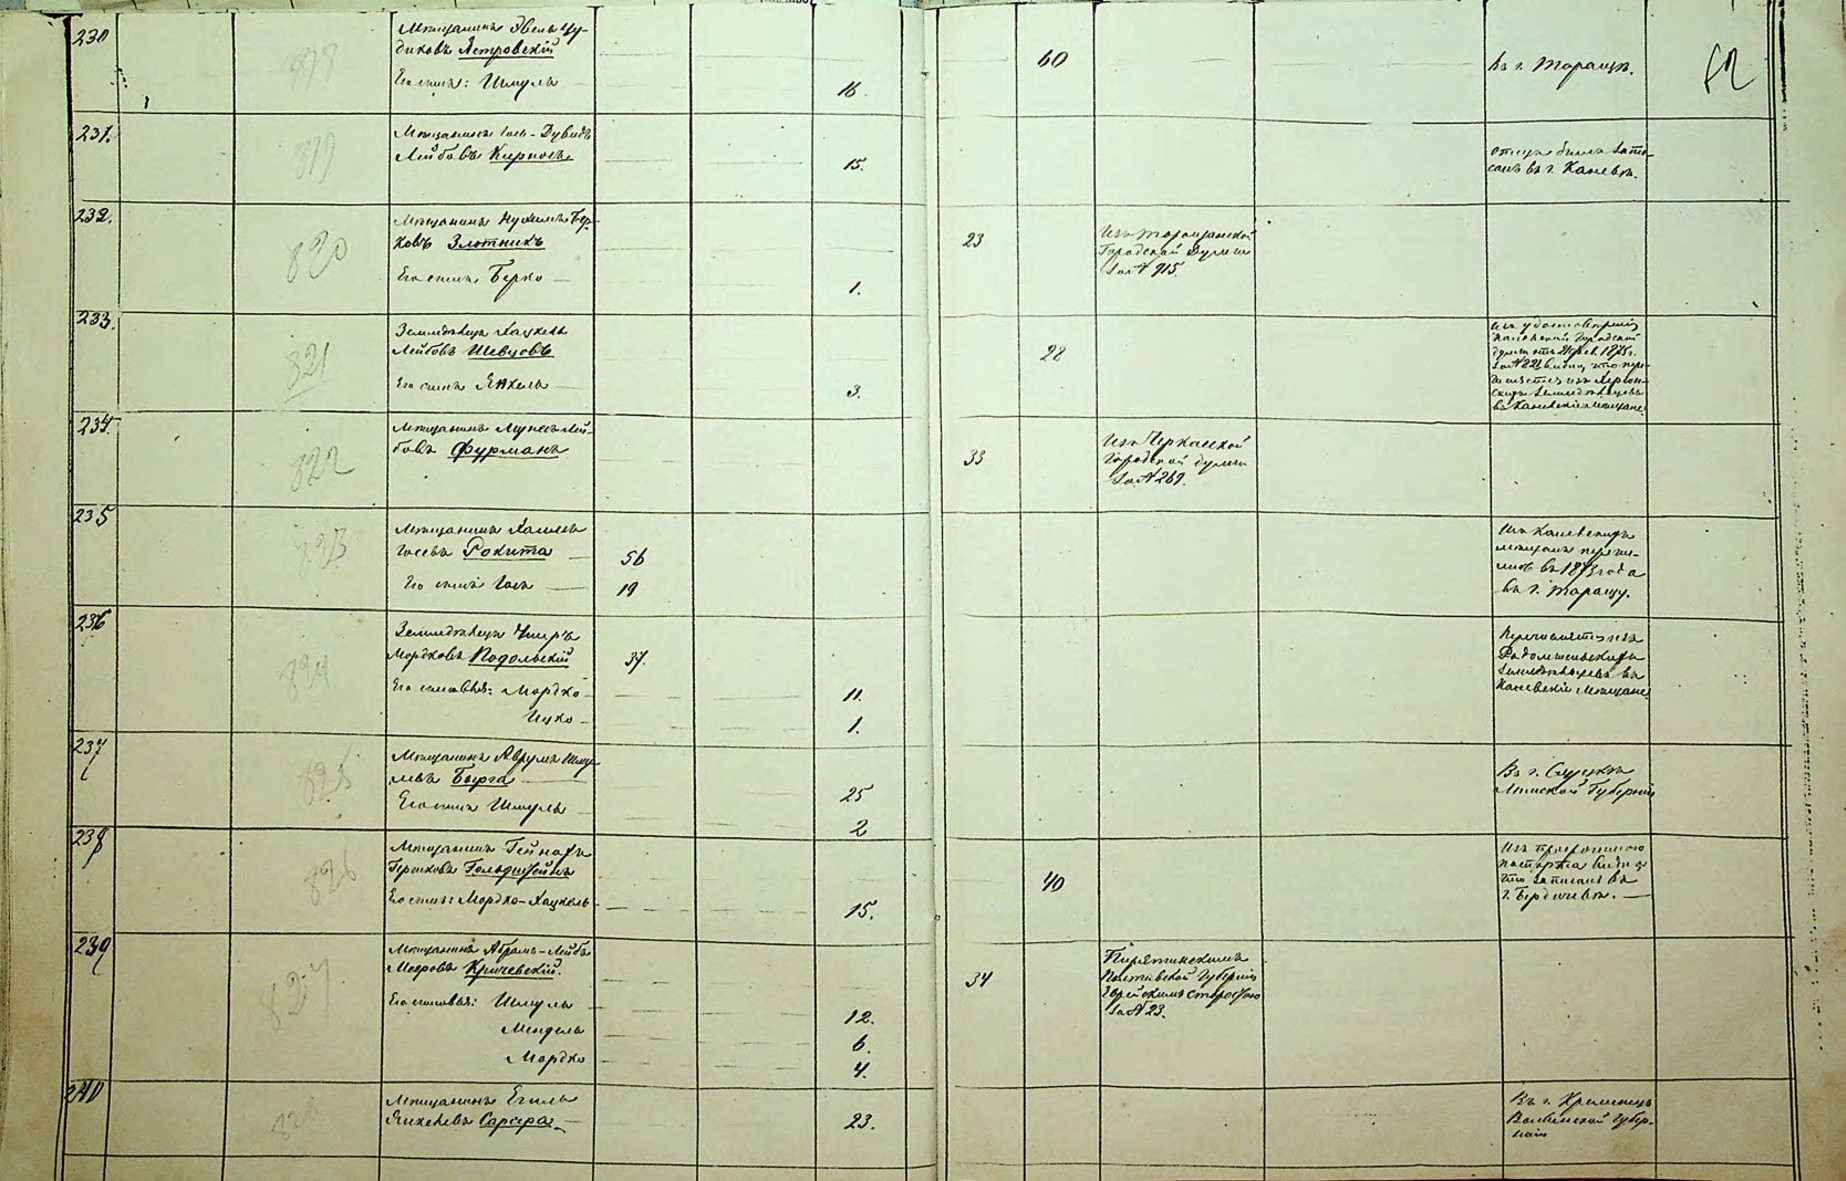 62
230
818
Мѣщанинъ Эвель Іу-
диковъ Петровскій
Его сынъ: Шмуль
16
60
въ г. Таращѣ.
231.
819
Мѣщанинъ Іось-Дувидъ
Лейбовъ Кирносъ
15.
отецъ былъ запи-
санъ въ г. Каневѣ.
232.
820
Мѣщанинъ Нухимъ Бер-
ковъ Злотникъ
Его сынъ Берко
1.
23
Изъ Таращанской
Городской Думы
за № 915.
233.
821
Земледѣлецъ Хацкель
Лейбовъ Шевцовъ
Его сынъ Янкель
3.
28
Изъ удостовѣренія
Каневской Городской
Думы отъ 1875 г.
за № 221 видно, что пере-
числяется изъ Херсон-
скихъ земледѣльцевъ
въ Каневскіе мѣщане
234.
822
Мѣщанинъ Лей-
бовъ Фурманъ
33
Изъ Черкасской
Городской Думы
за № 269.
235
823
Мѣщанинъ Хаимъ
Іосевъ Рокита
56
Его сынъ Іось
19
Изъ Каневскихъ
мѣщанъ перечи-
сленъ въ 1873 года
въ г. Таращу.
236
824
Земледѣлецъ Умеръ
Мордковъ Подольскій
37.
Его сыновья: Мордко
11.
Ицко
1.
Перечисляется изъ
Радомысльскихъ
земледѣльцевъ въ
Каневскіе мѣщане
237
825
Мѣщанинъ Аврумъ Шму-
левъ Берга
25
Его сынъ Шмуль
2
Въ г. Слуцкѣ
Минской Губерніи
238
826
Мѣщанинъ Гейнахъ
Гершковъ Гольдштейнъ
Его сынъ: Мордко-Хацкель
15.
40
Изъ просроченного
паспорта видно
что записанъ въ
г. Бердичевѣ.
239
827
Мѣщанинъ Абрамъ-Лейба
Мееровъ Кричевскій.
Его сыновья: Шмуль
12.
Мендель
6.
Мордко
4.
34
Пирятинскимъ
Полтавской Губерніи
Еврейскимъ старостою
за № 23.
240
828
Мѣщанинъ Ехиль
Янкелевъ Сарфра
23.
Въ г. Кременцѣ
Волынской Губер-
ніи